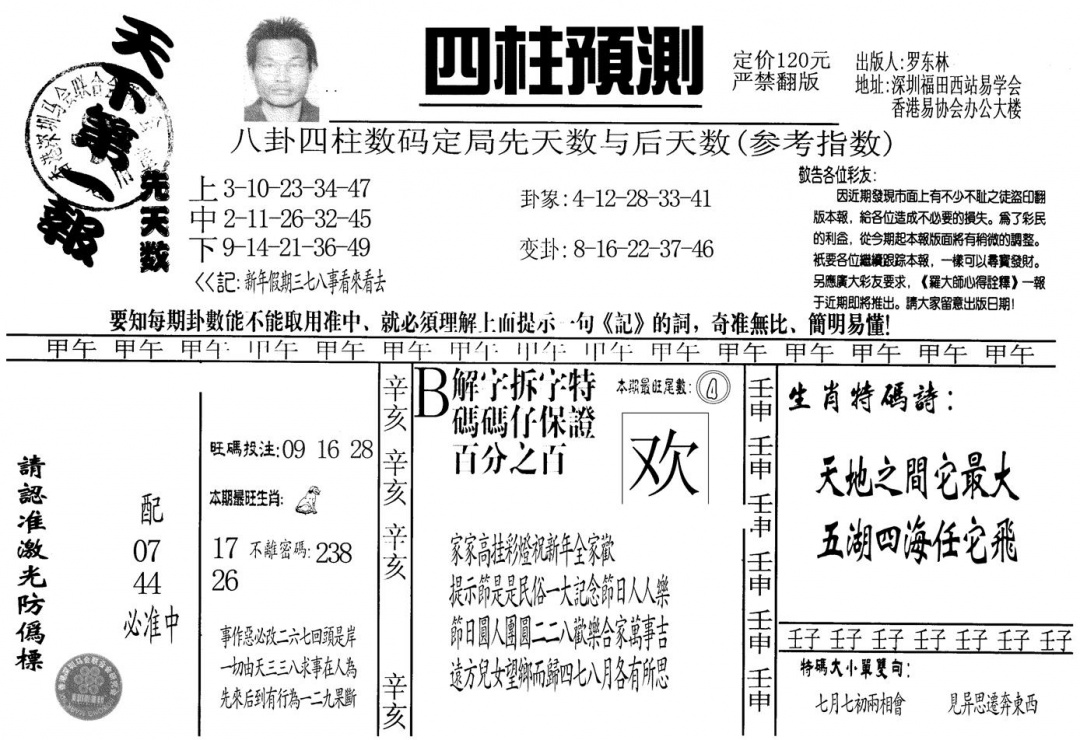 天下第一報
四柱預測
定价120元
严禁翻版
出版人:罗东林
地址:深圳福田西站易学会
香港易协会办公大楼
八卦四柱数码定局先天数与后天数(参考指数)
先天数
上3-10-23-34-47
中2-11-26-32-45
下9-14-21-36-49
<<記:新年假期三七八事看來看去
卦象:4-12-28-33-41
变卦:8-16-22-37-46
敬告各位彩友:
因近期發現市面上有不少不耻之徒盜印翻
版本報，給各位造成不必要的損失。爲了彩民
的利益，從今期起本報版面將有稍微的調整。
衹要各位繼續跟踪本報，一樣可以尋寶發財。
另應廣大彩友要求，《羅大師心得詮釋》一報
于近期即將推出。請大家留意出版日期!
要知每期卦數能不能取用准中、就必須理解上面提示一句《記》的詞，奇准無比、簡明易懂!
甲午 甲午 甲午 甲午 甲午 甲午 甲午 甲午 甲午 甲午 甲午 甲午 甲午 甲午 甲午
請認准激光防僞標
配
07
44
必准中
旺碼投注:09 16 28
本期最旺生肖:
17 不離密碼:238
26
事作惡必改二六七回頭是岸
一切由天三三八求事在人為
先來后到有行為一二九果斷
辛亥
辛亥
辛亥
辛亥
B解字拆字特
碼碼仔保證
百分之百
本期最旺尾數:④
欢
家家高挂彩燈祝新年全家歡
提示節是是民俗一大記念節日人人樂
節日圓人團圓二二八歡樂合家萬事吉
遠方兒女望鄉而歸四七八月各有所思
壬申
壬申
壬申
壬申
壬申
壬申
生肖特碼詩:
天地之間它最大
五湖四海任它飛
壬子 壬子 壬子 壬子 壬子 壬子 壬子
特碼大小單雙句:
七月七初兩相會 見异思遷奔東西